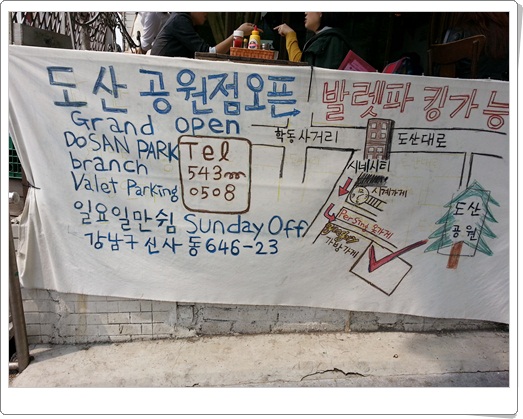 도산 공원점오픈
발렛파킹가능
Grand open
DOSAN PARK
branch
Valet Parking
Tel
543
0508
일요일만쉼 Sunday Off
강남구 신사동 646-23
학동사거리
도산대로
시네시티
시계가게
옷가게
가방가게
도산
공원